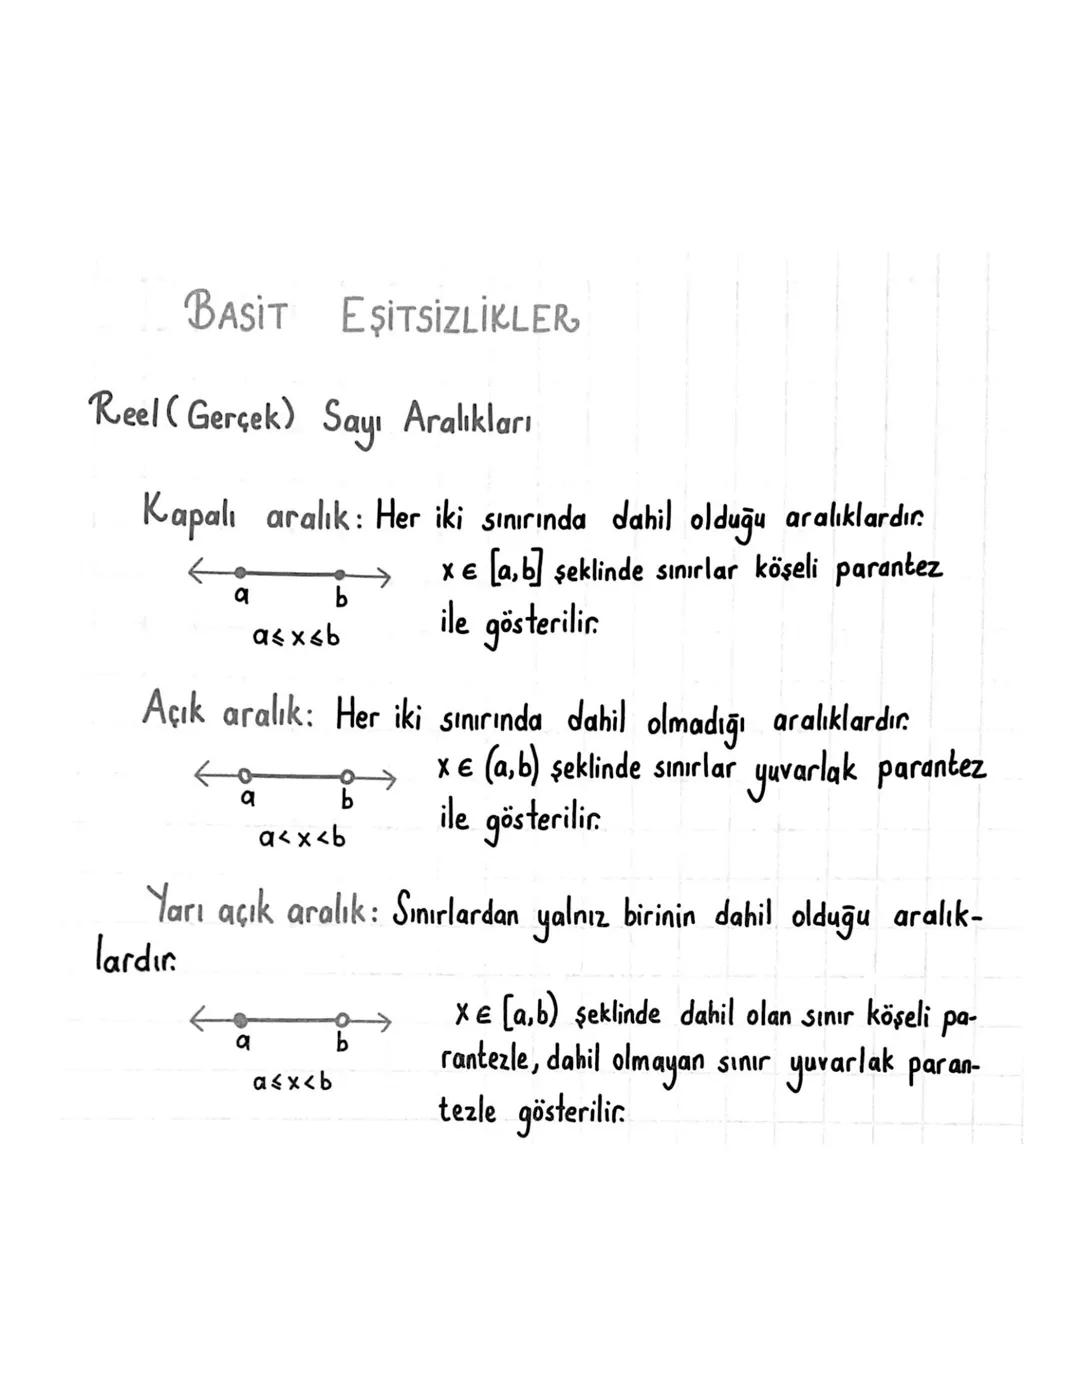 BASİT EŞİTSİZLİKLER
Reel (Gerçek) Sayı Aralıkları
Kapalı aralık: Her iki sınırında dahil olduğu aralıklardır.
x ∈ [a,b] şeklinde sınırlar köşeli parantez
a b
ile gösterilir.
a≤x≤b
Açık aralık: Her iki sınırında dahil olmadığı aralıklardır.
x ∈ (a,b) şeklinde sınırlar yuvarlak parantez
a b
ile gösterilir.
a<x<b
Yarı açık aralık: Sınırlardan yalnız birinin dahil olduğu aralık-
lardır.
x ∈ [a,b) şeklinde dahil olan sınır köşeli pa-
a b
rantezle, dahil olmayan sınır yuvarlak paran-
a≤x<b
tezle gösterilir.